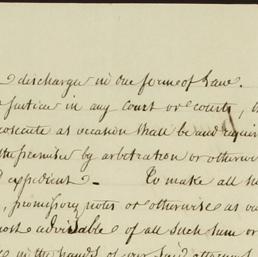 discharge in due forme of Law.
Justice in any Court or Courts,
prosecute as occasion shall be and require
the premises by arbetration or otherwis
d expedient. - To make all su
, promissory notes or otherwise as ou
most advisable of all such sum or
in the hands of our said attorney